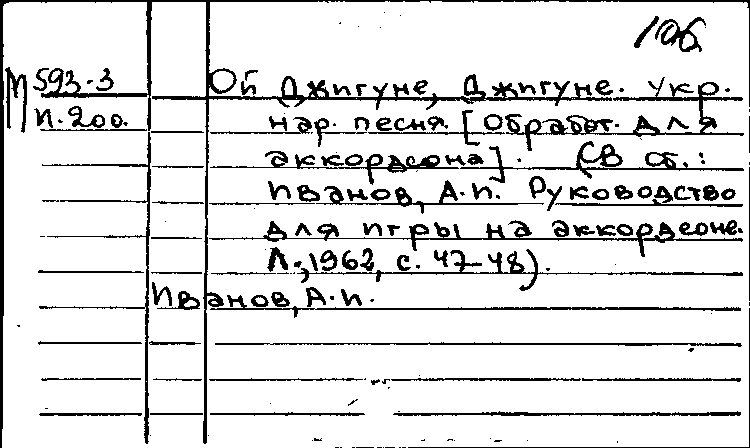 106
М 593-3 Ой Джигуне, Джигуне. Укр.
И.200. нар. песня. [Обработ. для
аккордеона]. (В сб.:
Иванов, А.И. Руководство
для игры на аккордеоне.
Л., 1962, с. 47-48).
Иванов, А.И.